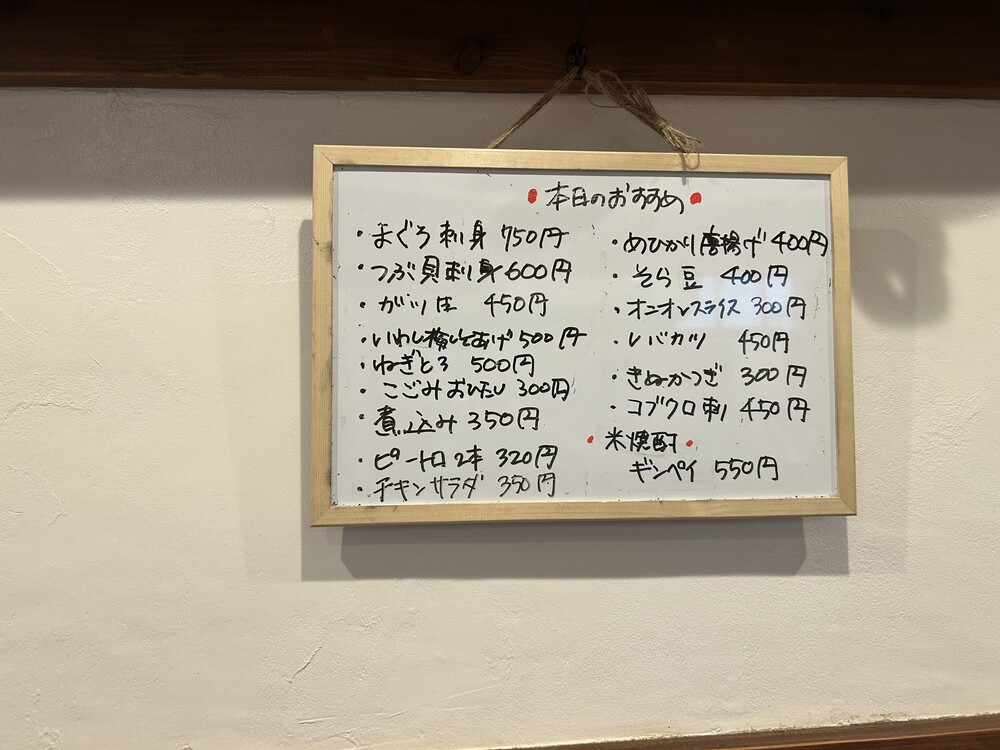 本日のおすすめ
・まぐろ刺身 750円
・つぶ貝刺身 600円
・ガツ生 450円
・いわし梅しそあげ 500円
・ねぎとろ 500円
・こごみおひたし 300円
・煮込み 350円
・ピートロ2本 320円
・チキンサラダ 350円
・めひかり唐揚げ 400円
・そら豆 400円
・オニオンスライス 300円
・レバカツ 450円
・きぬかつぎ 300円
・コブクロ刺 450円
・米焼酎・
ギンペイ 550円